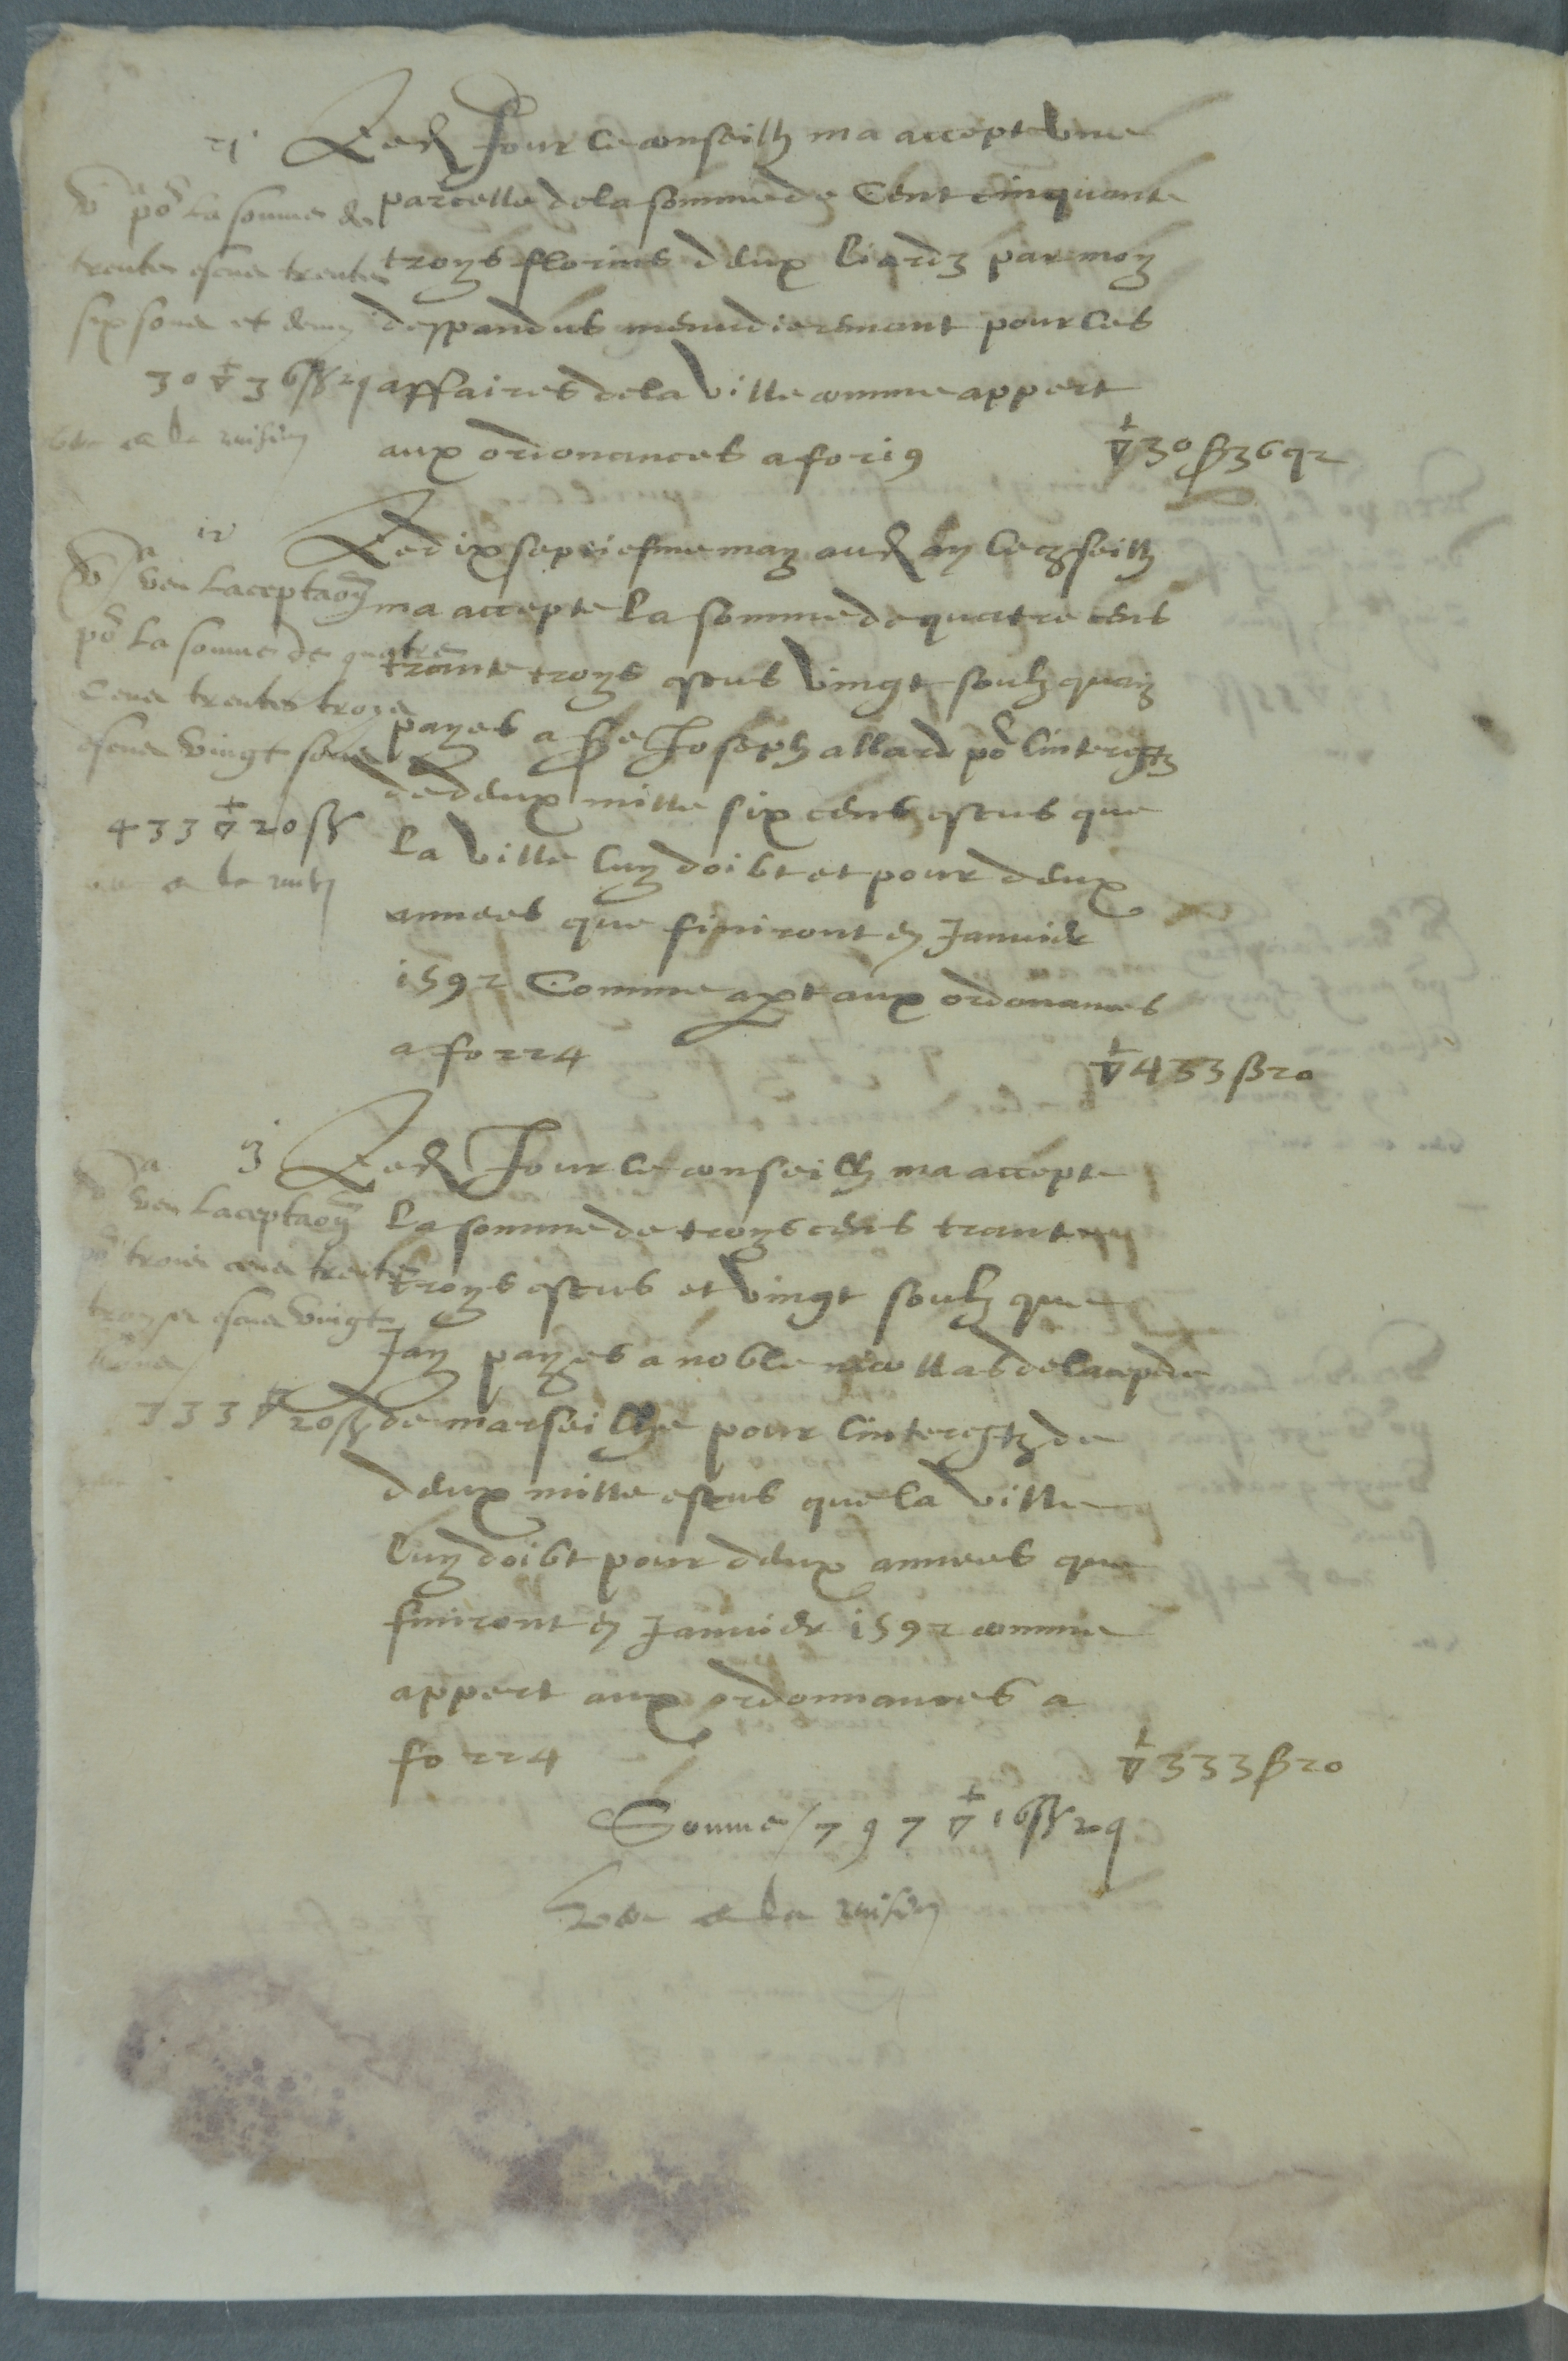 Led Jour le conseilh ma accepte Une
parcelle de la somme de Cent cinquante
troys florins deux liardz par moy
despandus menudieremant pour les
affaires de la Ville comme appert
aux ordonances a fo 219
▽ 30 ß 36 q 2
po la somme de
trente escus trente
six sous et demy
30 ▽ 36 ß 2 q
Le dixseptiesme may aud an le conseilh
ma accepte la somme de quatre cens
trante troys escus Vingt soulz quay
payes a Sre Joseph allard po linterestz
de deux mille six cens escus que
la Ville luy doibt et pour deux
annees que finiront en Janvier
1592 Comme apert aux ordonances
a fo 224
▽ 433 ß 20
veu lacceptaon
po la somme de quatre
cens trente troys
escus Vingt sous
433 ▽ 20 ß
3 Led Jour le conseilh ma accepte
la somme de troys cens trante
troys escus et Vingt soulz que
Jay payes a noble nicollas de
de marseilhe pour linterestz de
deux mille escus que la Ville
luy doibt pour deux annees que
finiront en Janvier 1592 comme
appert aux ordonnances a
fo 224
▽ 333 ß 20
veu lacceptaon
po trois cens trente
troys escus Vingt
sous
333 ▽ 20 ß
Somme / 797 ▽ 16 ß 2 q